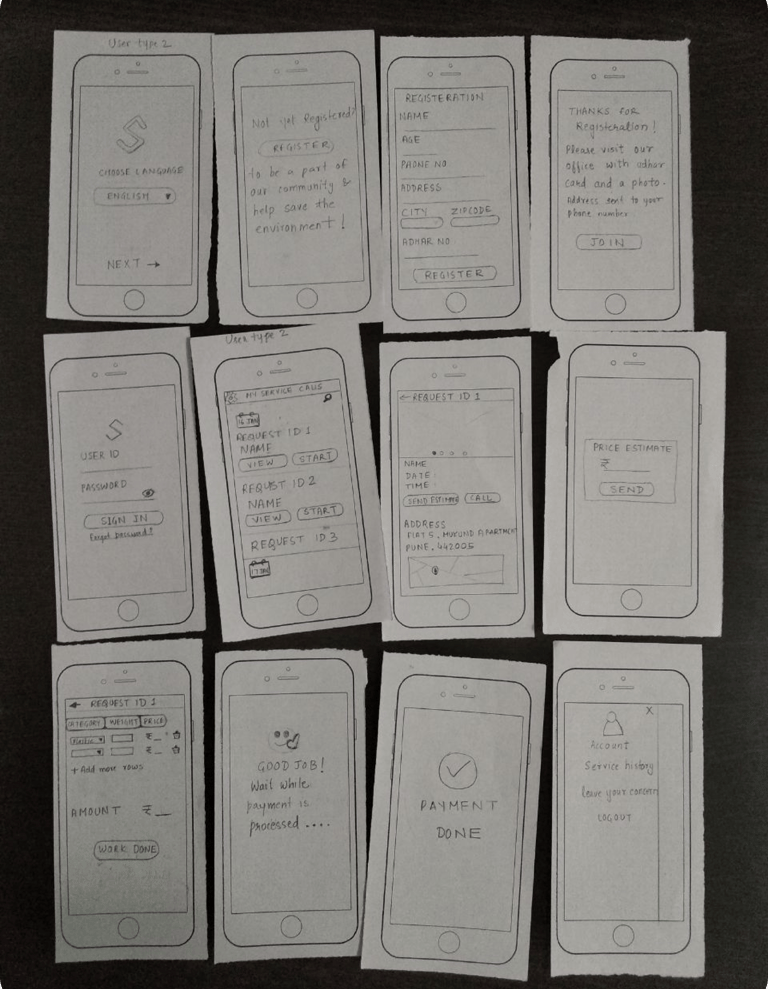 User type 2
S
CHOOSE LANGUAGE
ENGLISH
NEXT →
Not yet Registered?
REGISTER
to be a part of
our community &
help save the
environment!
REGISTERATION
NAME
AGE
PHONE NO
ADDRESS
CITY ZIPCODE
ADHAR NO
REGISTER
THANKS FOR
Registeration!
Please visit our
office with adhar
card and a photo.
Address sent to your
phone number
JOIN
S
USER ID
PASSWORD
SIGN IN
Forgot password?
User type 2
MY SERVICE CALLS
16 JAN
REQUEST ID 1
NAME
VIEW START
REQUEST ID 2
NAME
VIEW START
REQUEST ID 3
17 JAN
← REQUEST ID 1
NAME
DATE :
TIME :
SEND ESTIMATE CALL
ADDRESS
FLAT 5, MUKUND APARTMENT
PUNE, 442005
PRICE ESTIMATE
₹
SEND
← REQUEST ID 1
CATEGORY WEIGHT PRICE
Plastic ₹
₹
+ Add more rows
AMOUNT ₹
WORK DONE
GOOD JOB!
Wait while
payment is
processed ....
PAYMENT
DONE
X
Account
Service history
leave your concern
LOGOUT